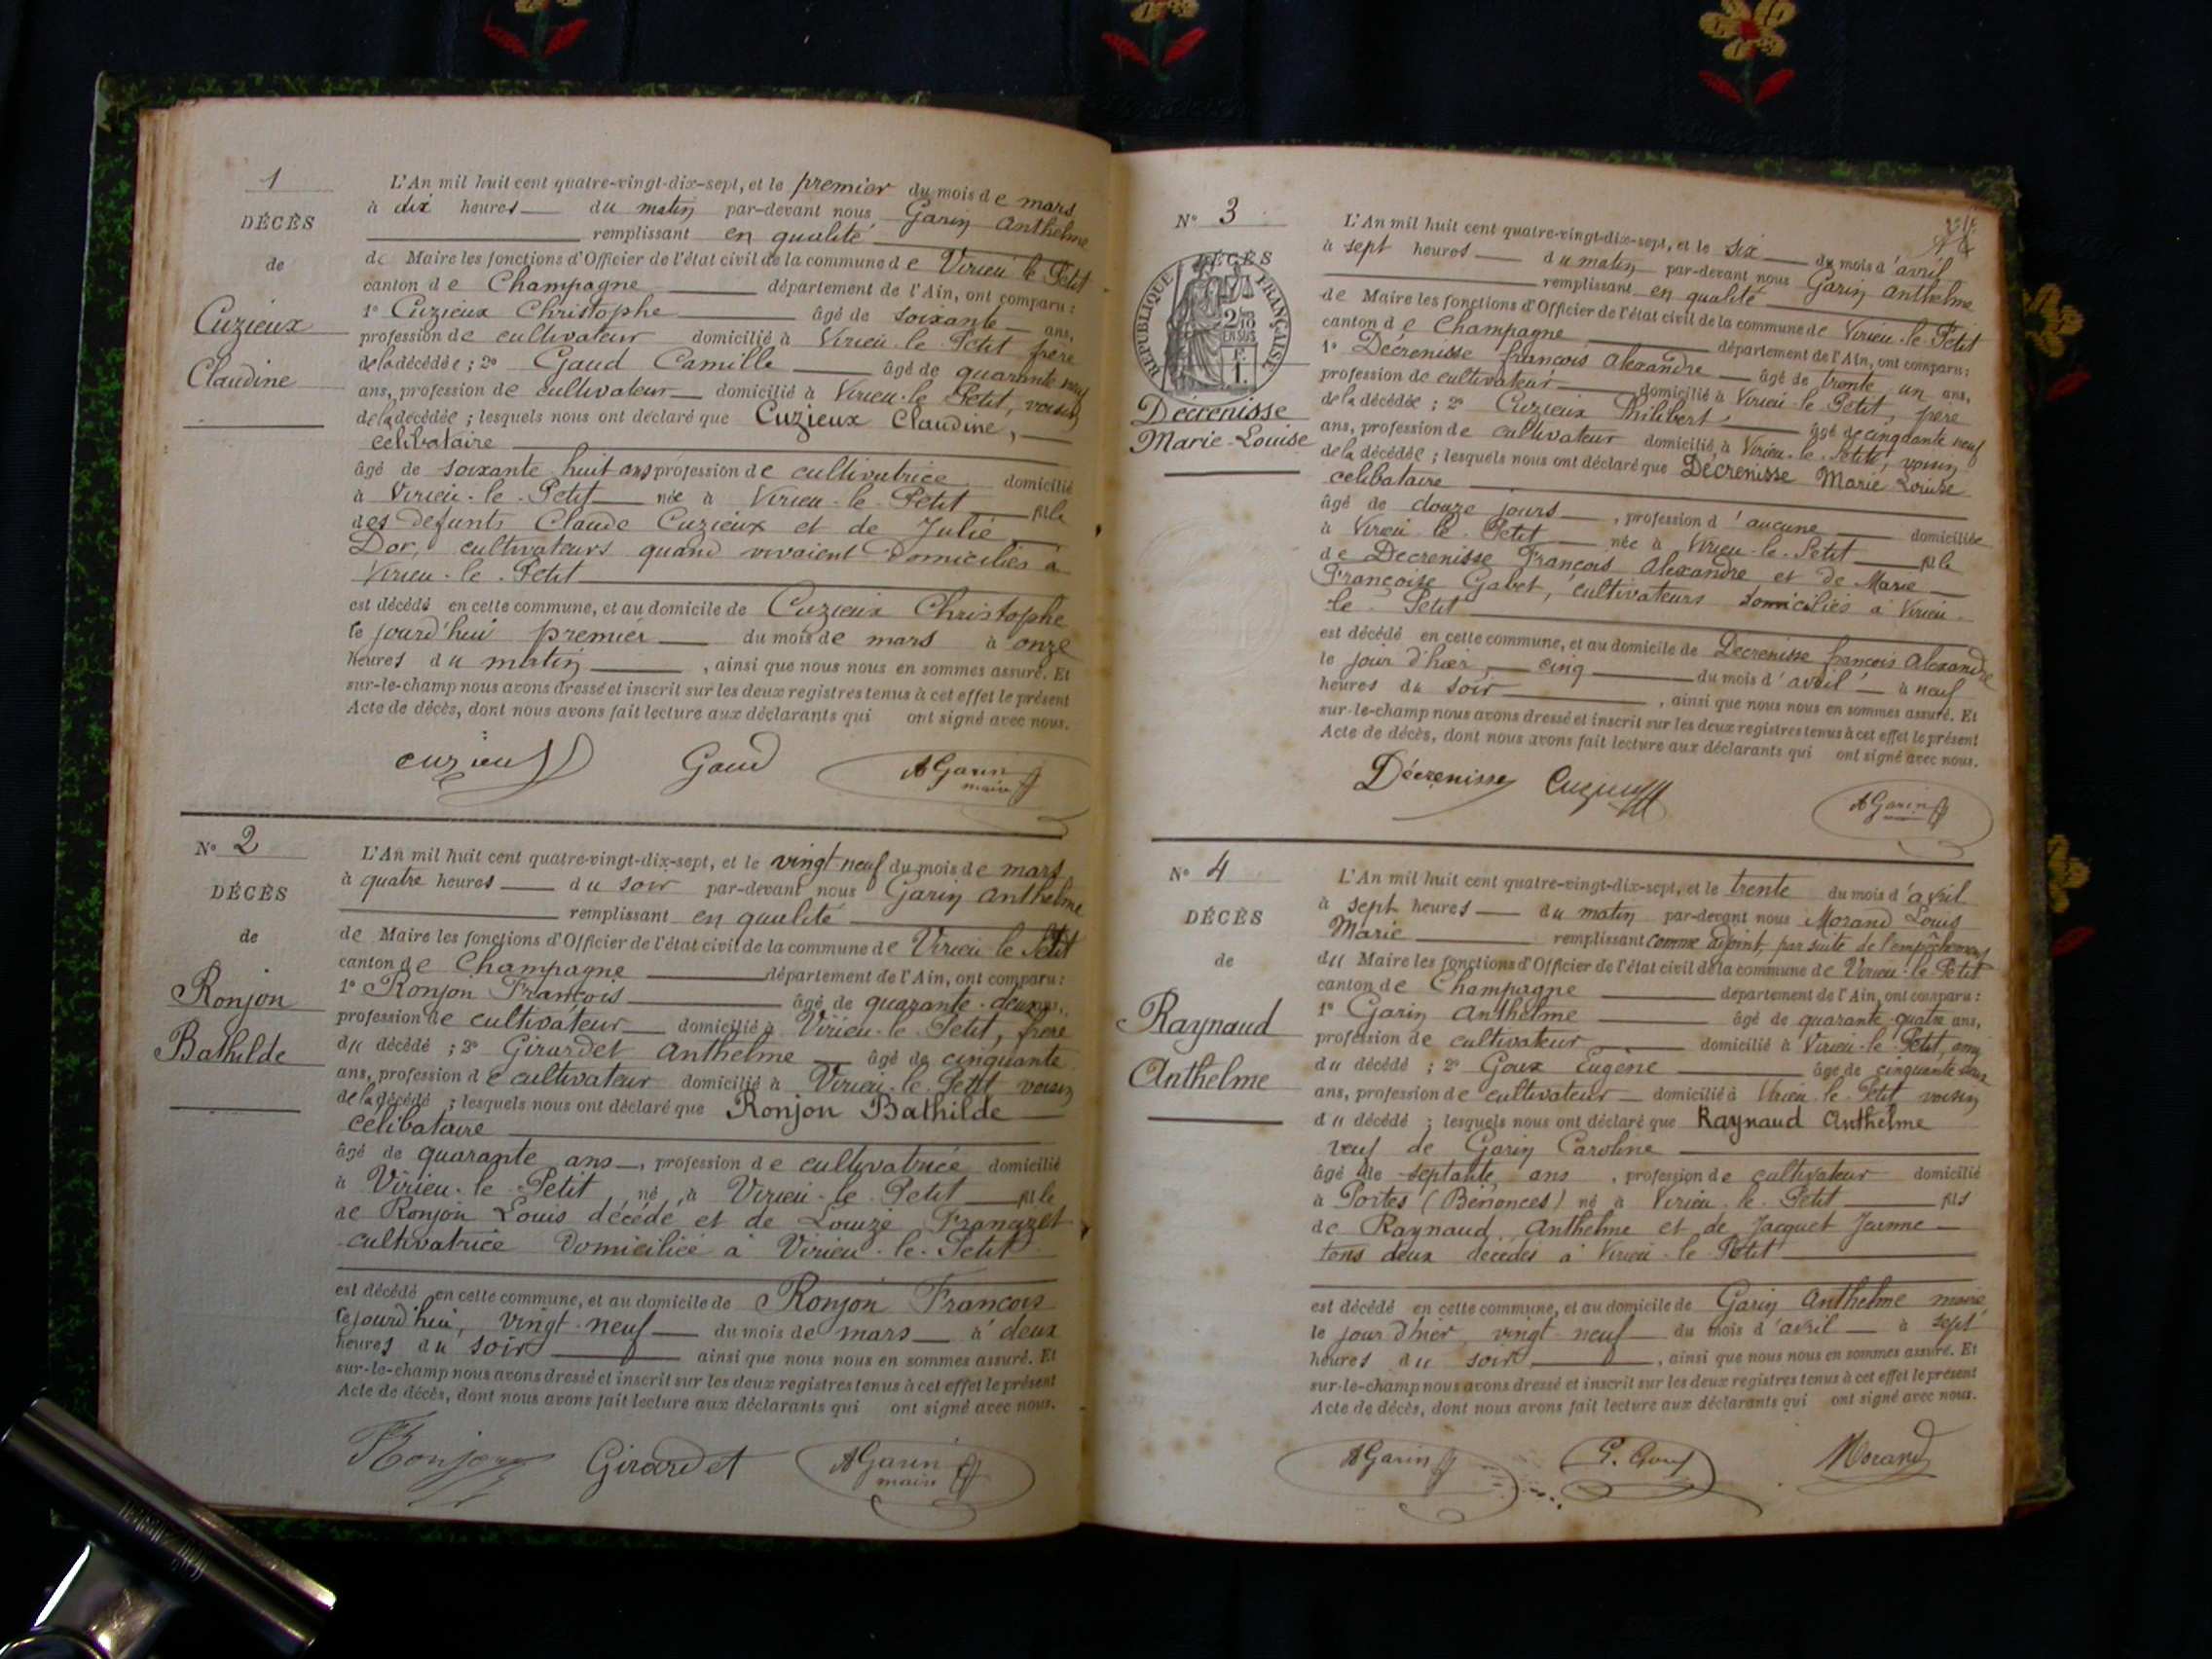 1
DÉCÈS
de
Cuzieux
Claudine
L'An mil huit cent quatre-vingt-dix-sept, et le premier du mois de mars
à dix heures du matin par-devant nous Garin Anthelme
remplissant en qualité
de Maire les fonctions d'Officier de l'état civil de la commune de Virieu le Petit
canton de Champagne département de l'Ain, ont comparu :
1° Cuzieux Christophe âgé de soixante ans,
profession de cultivateur domicilié à Virieu-le-Petit frere
de la décédée ; 2° Gaud Camille âgé de quarante neuf
ans, profession de cultivateur domicilié à Virieu-le Petit, voisin
de la décédée ; lesquels nous ont déclaré que Cuzieux Claudine,
celibataire
âgé de soixante huit ans profession de cultivatrice domicilié
à Virieu-le-Petit née à Virieu-le-Petit fille
des defunts Claude Cuzieux et de Julie
Dor, cultivateurs quand vivaient domiciliés à
Virieu-le-Petit
est décédé en cette commune, et au domicile de Cuzieux Christophe
le jourd'hui premier du mois de mars à onze
heures du matin, ainsi que nous nous en sommes assuré. Et
sur-le-champ nous avons dressé et inscrit sur les deux registres tenus à cet effet le présent
Acte de décès, dont nous avons fait lecture aux déclarants qui ont signé avec nous.
cuzieux Gaud AGarin
maire
N° 2
DÉCÈS
de
Ronjon
Bathilde
L'An mil huit cent quatre-vingt-dix-sept, et le vingt-neuf du mois de mars
à quatre heures du soir par-devant nous Garin Anthelme
remplissant en qualité
de Maire les fonctions d'Officier de l'état civil de la commune de Virieu le Petit
canton de Champagne département de l'Ain, ont comparu :
1° Ronjon François âgé de quarante-deux ans,
profession de cultivateur domicilié à Virieu-le-Petit, frere
du décédé ; 2° Girardet Anthelme âgé de cinquante
ans, profession de cultivateur domicilié à Virieu-le-Petit voisin
de la décédé ; lesquels nous ont déclaré que Ronjon Bathilde
celibataire
âgé de quarante ans, profession de cultivatrice domicilié
à Virieu-le-Petit, né à Virieu-le-Petit fille
de Ronjon Louis décédé et de Louize Françazet
cultivatrice domiciliée à Virieu-le-Petit
est décédé en cette commune, et au domicile de Ronjon François
le jourd'hui, vingt-neuf du mois de mars à deux
heures du soir ainsi que nous nous en sommes assuré. Et
sur-le-champ nous avons dressé et inscrit sur les deux registres tenus à cet effet le présent
Acte de décès, dont nous avons fait lecture aux déclarants qui ont signé avec nous.
Ronjon Girardet AGarin
maire
N° 3
DÉCÈS
RÉPUBLIQUE FRANÇAISE
2/10
EN SUS
1 F.
Décrenisse
Marie-Louise
L'An mil huit cent quatre-vingt-dix-sept, et le six du mois d'avril
à sept heures du matin par-devant nous Garin Anthelme
remplissant en qualité
de Maire les fonctions d'Officier de l'état civil de la commune de Virieu-le-Petit
canton de Champagne département de l'Ain, ont comparu :
1° Décrenisse françois Alexandre âgé de trente un ans,
profession de cultivateur domicilié à Virieu-le-Petit, pere
de la décédée ; 2° Cuzieux Philibert âgé de cinquante neuf
ans, profession de cultivateur domicilié à Virieu-le-Petit, voisin
de la décédée ; lesquels nous ont déclaré que Décrenisse Marie Louise
celibataire
âgé de douze jours, profession d'aucune domiciliée
à Virieu-le-Petit née à Virieu-le-Petit fille
de Decrenisse François Alexandre et de Marie
Françoise Gabet, cultivateurs domiciliés à Virieu-
le-Petit
est décédé en cette commune, et au domicile de Decrenisse françois Alexandre
le jour d'hier cinq du mois d'avril à neuf
heures du soir, ainsi que nous nous en sommes assuré. Et
sur-le-champ nous avons dressé et inscrit sur les deux registres tenus à cet effet le présent
Acte de décès, dont nous avons fait lecture aux déclarants qui ont signé avec nous.
Décrenisse Cuzieux AGarin
N° 4
DÉCÈS
de
Raynaud
Anthelme
L'An mil huit cent quatre-vingt-dix-sept, et le trente du mois d'avril
à sept heures du matin par-devant nous Morand Louis
Marie remplissant comme adjoint, par suite de l'empêchement
du Maire les fonctions d'Officier de l'état civil de la commune de Virieu-le-Petit
canton de Champagne département de l'Ain, ont comparu :
1° Garin Anthelme âgé de quarante quatre ans,
profession de cultivateur domicilié à Virieu-le-Petit, ami
du décédé ; 2° Goux Eugène âgé de cinquante deux
ans, profession de cultivateur domicilié à Virieu-le-Petit voisin
du décédé ; lesquels nous ont déclaré que Raynaud Anthelme
veuf de Garin Caroline
âgé de septante ans, profession de cultivateur domicilié
à Portes (Bénonces) né à Virieu-le-Petit fils
de Raynaud Anthelme et de Jacquet Jeanne
tous deux décédés à Virieu-le-Petit
est décédé en cette commune, et au domicile de Garin Anthelme maire,
le jour d'hier vingt-neuf du mois d'avril à sept
heures du soir, ainsi que nous nous en sommes assuré. Et
sur-le-champ nous avons dressé et inscrit sur les deux registres tenus à cet effet le présent
Acte de décès, dont nous avons fait lecture aux déclarants qui ont signé avec nous.
AGarin G. Goux Morand